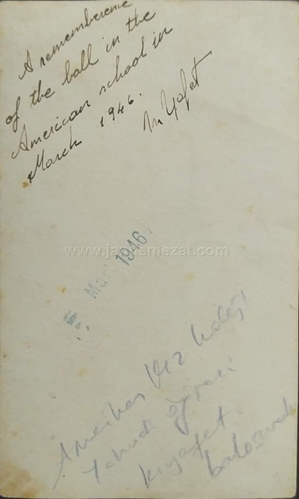 A rememberence
of the ball in the
American school in
March 1946.
M Yafet
www.jaddemezat.com
1946
Amerikan Kız Koleji
Yahudi öğrenci
kıyafet
balosunda